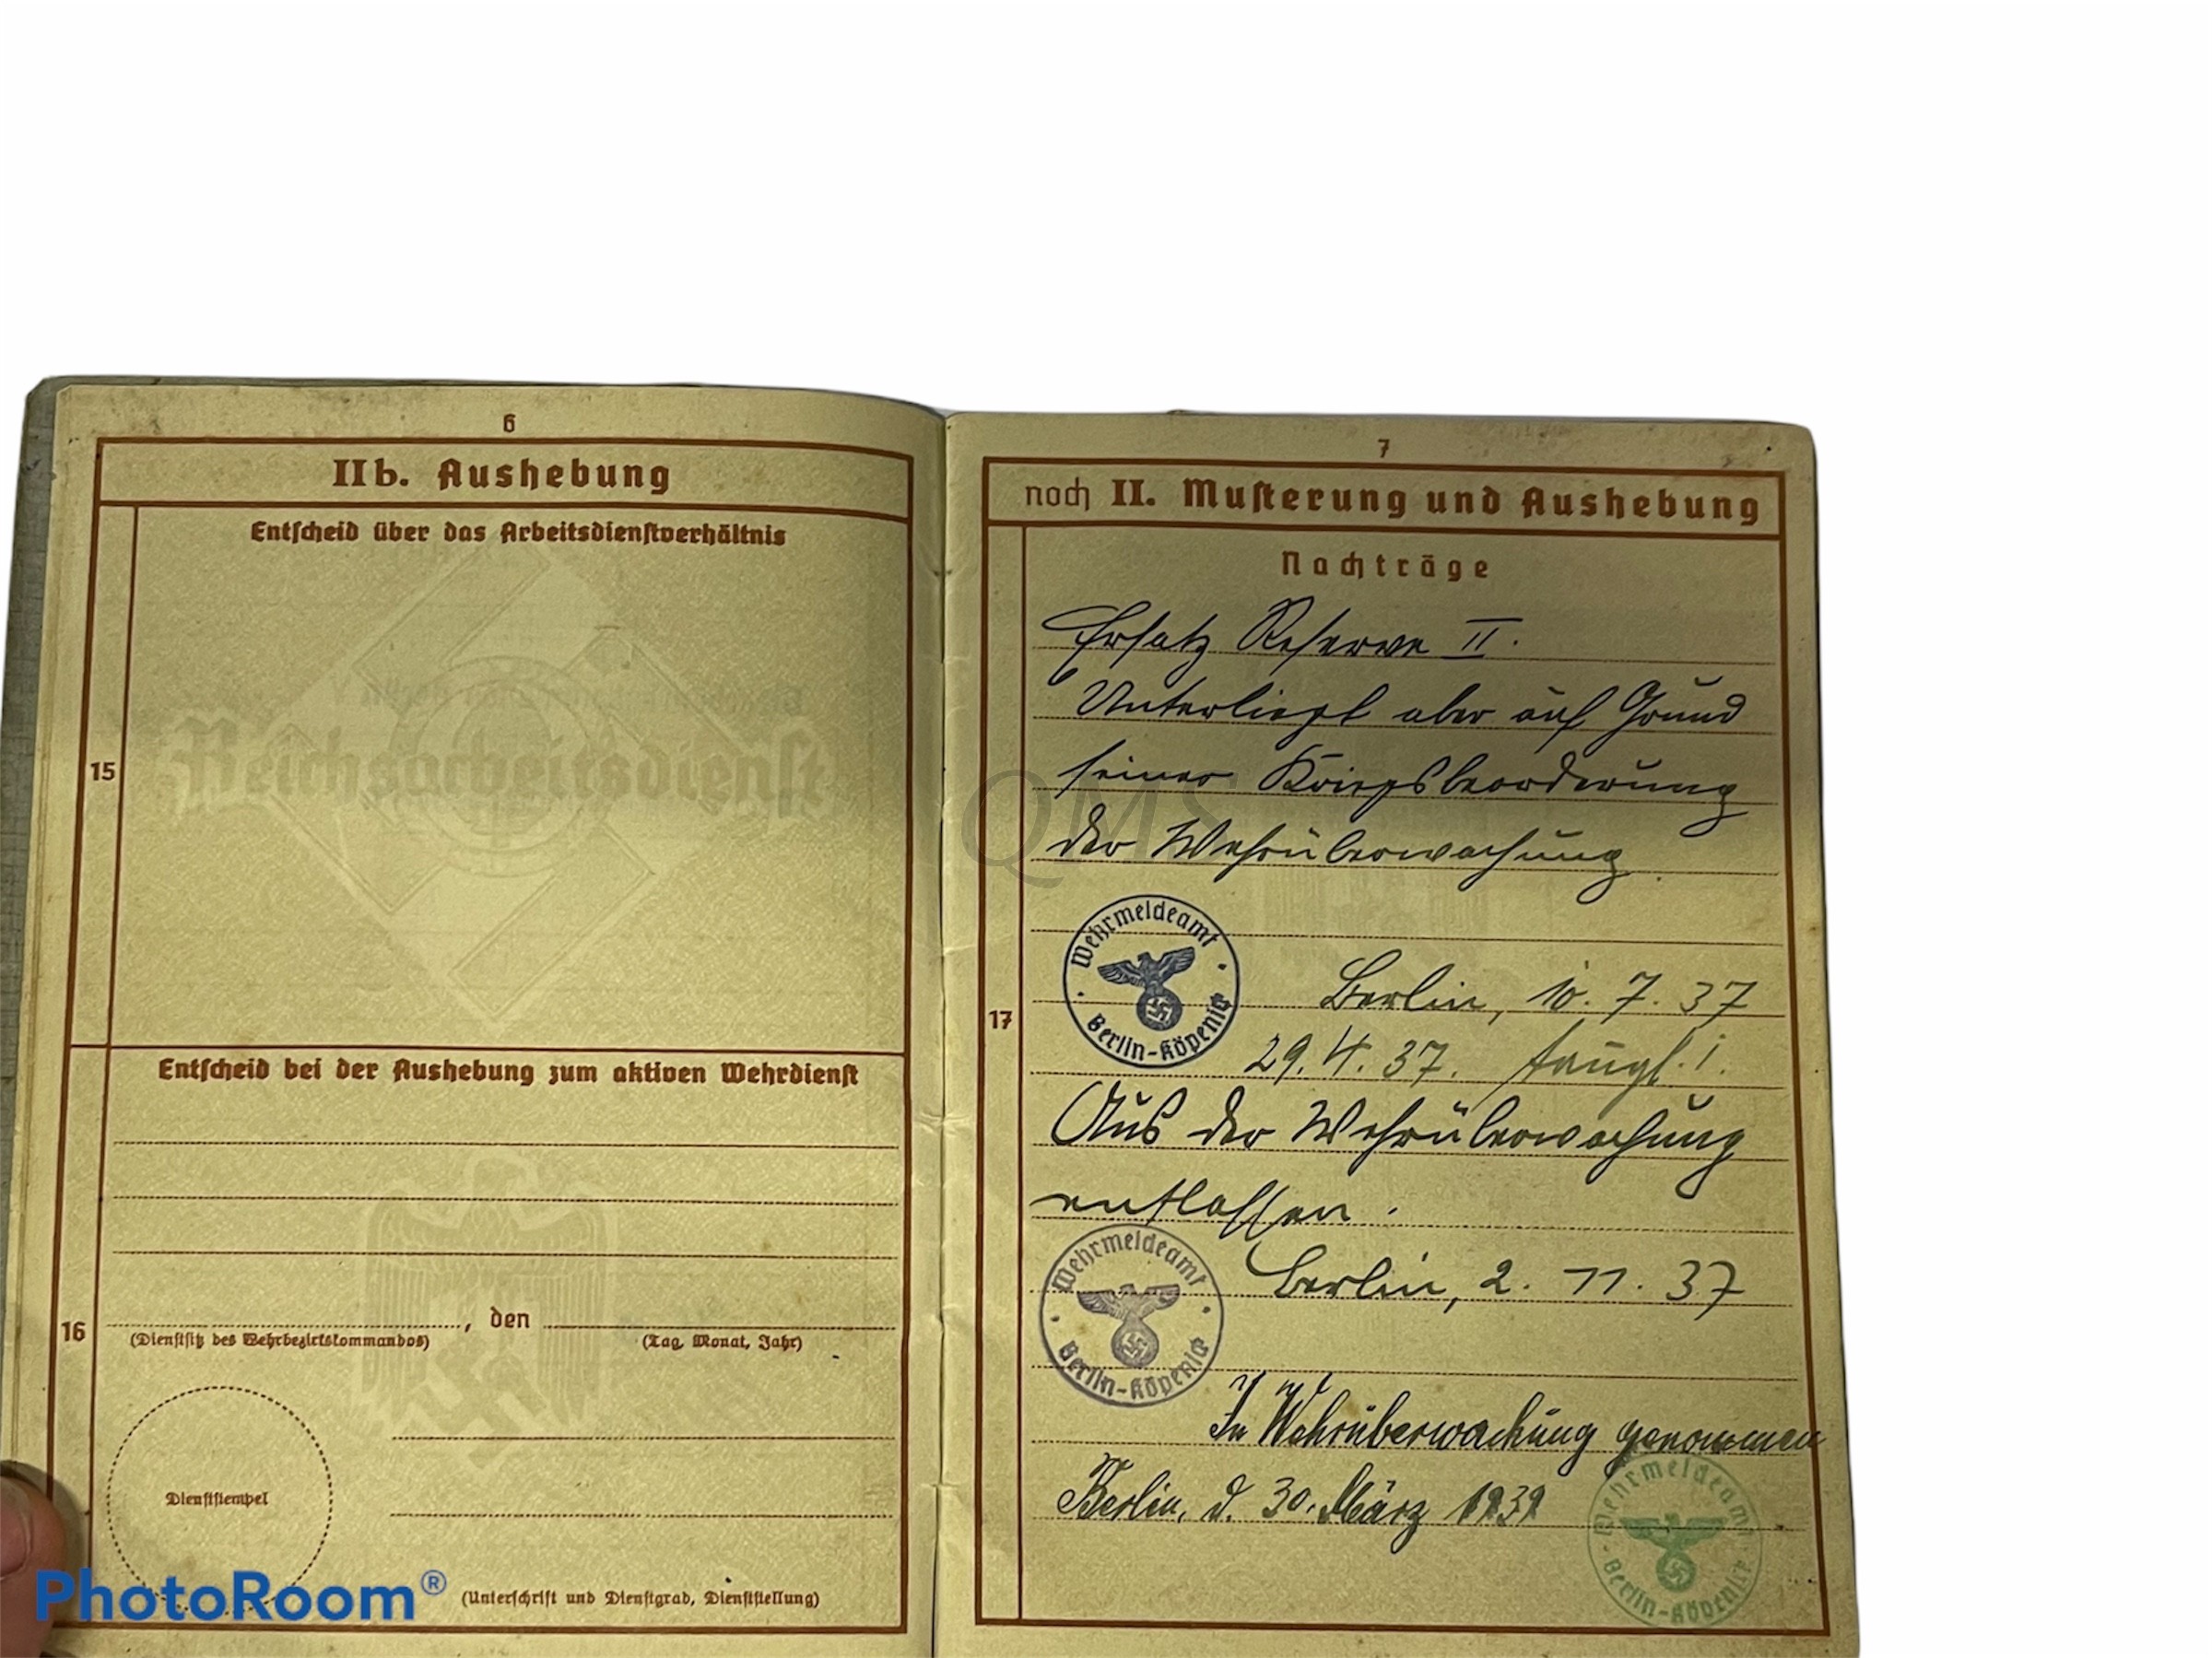 6
IIb. Aushebung
Entscheid über das Arbeitsdienstverhältnis
Reichsarbeitsdienst
15
Entscheid bei der Aushebung zum aktiven Wehrdienst
16
, den
(Dienstsitz des Wehrbezirkskommandos) (Tag, Monat, Jahr)
Dienststempel
(Unterschrift und Dienstgrad, Dienststellung)
PhotoRoom®
7
noch II. Musterung und Aushebung
Nachträge
Ersatz Reserve II.
Unterliegt aber auf Grund
seiner Kriegsbeorderung
der Wehrüberwachung.
QMS
Wehrmeldeamt
Berlin-Köpenick
Berlin, 10. 7. 37
17
29. 4. 37. taugl. 1.
Aus der Wehrüberwachung
entlassen.
Wehrmeldeamt
Berlin-Köpenick
Berlin, 2. 11. 37
In Wehrüberwachung genommen
Berlin, d. 30. März 1939
Wehrmeldeamt
Berlin-Köpenick